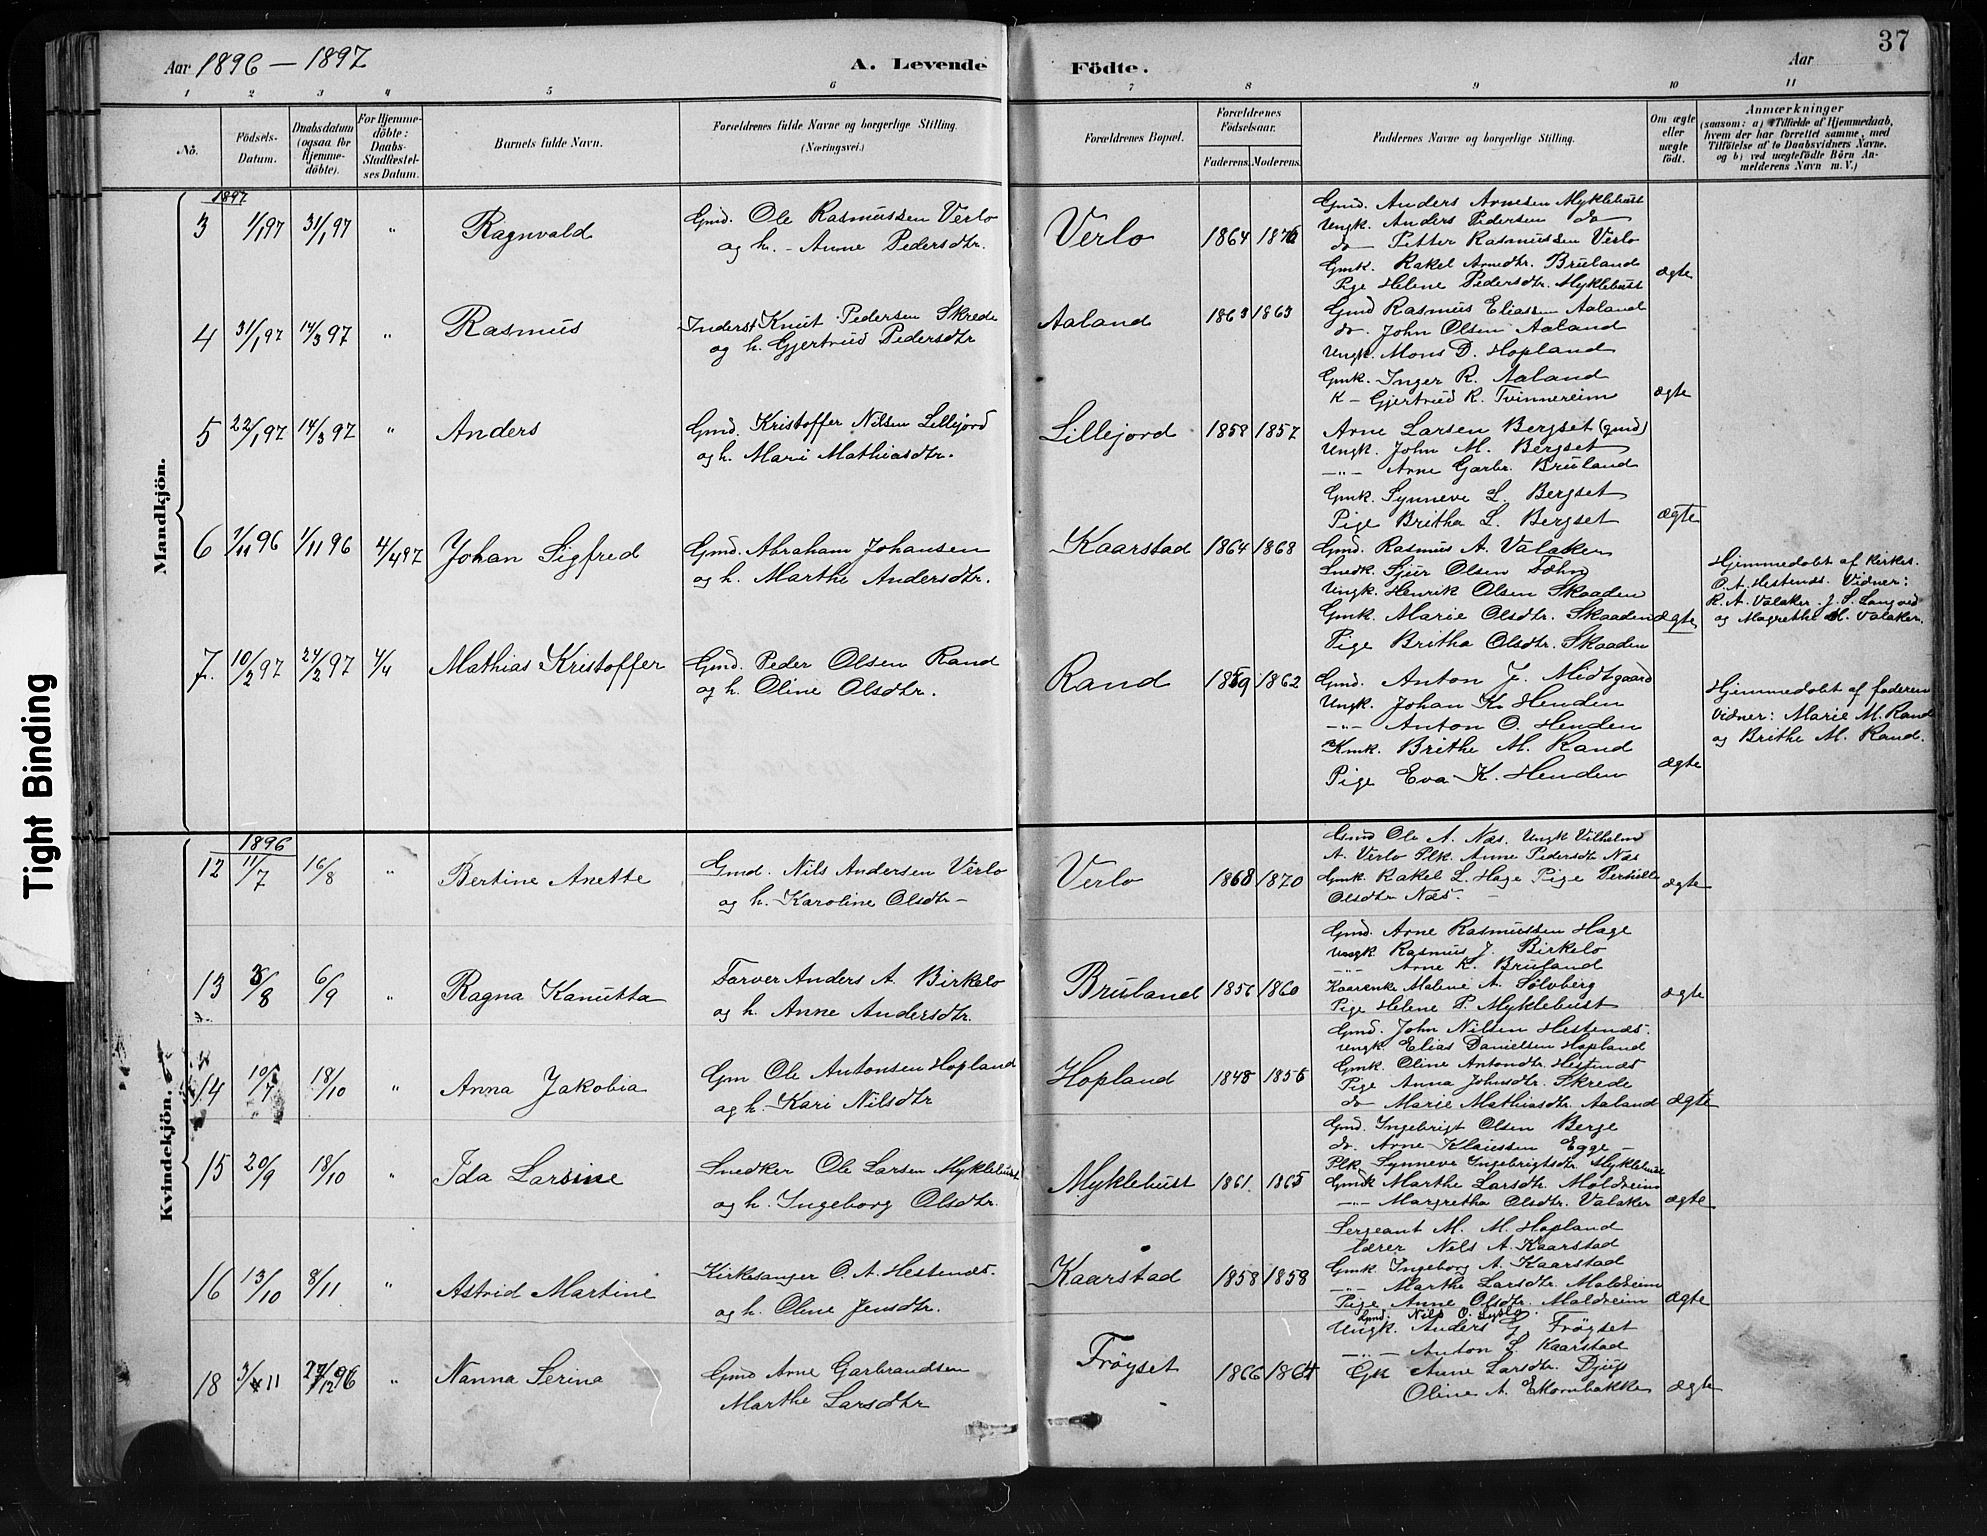 37
Aar 1896 – 1897 A. Levende Födte. Aar
1 2 3 4 5 6 7 8 9 10 11
No. Födsels-Datum. Daabsdatum (ogsaa for Hjemmedöbte). For Hjemmedöbte: Daabs-Stadfæstelses Datum. Barnets fulde Navn. Forældrenes fulde Navne og borgerlige Stilling. (Næringsvei.) Forældrenes Bopæl. Forældrenes Födselsaar. Faderens. Moderens. Faddernes Navne og borgerlige Stilling. Om ægte eller uægte födt. Anmærkninger (saasom: a) Tilfælde af Hjemmedaab, hvem der har forrettet samme, med Tilföielse af to Daabsvidners Navne. og b) ved uægtefödte Börn Anmelderens Navn m. V.)
Tight Binding
Mandkjön.
1897
3 1/1 97 31/1 97 " Ragnvald
Gmd. Ole Rasmussen Verlo
og h. - Anne Pedersdtr.
Verlo 1864 1876
Gmd. Anders Arnesen Myklebust
Ungk. Anders Pedersen do
do Petter Rasmussen Verlo
Gmk. Rakel Arnedtr. Bruland
Pige Helene Pedersdtr. Myklebust
ægte
4 31/1 97 14/3 97 " Rasmus
Inderst Knut Pedersen Skrede
og h. Gjertrud Pedersdtr
Aaland 1863 1863
Gmd Rasmus Eliassen Aaland
do. John Olsen Aaland
Ungk. Mons D. Hopland
Gmk. Inger R. Aaland
K - Gjertrud R. Tvinnereim
ægte
5 22/1 97 14/3 97 " Anders
Gmd. Kristoffer Nilsen Lillejord
og h. Mari Mathiasdtr.
Lillejord 1858 1857
Arne Larsen Bergset (gmd)
Ungk. John M. Bergset
—"— Arne Garbr. Bruland
Gmk. Synneve L. Bergset
Pige Britha L. Bergset
ægte
6 1/11 96 1/11 96 4/4 97 Johan Sigfred
Gmd. Abraham Johansen
og h. Marthe Andersdtr.
Kaarstad 1864 1868
Gmd. Rasmus A. Valaker
Snedk. Sjur Olsen Tæhn
Ungk. Henrik Olsen Skaaden
Gmk. Marie Olsdtr. Skaaden
Pige Britha Olsdtr. Skaaden
ægte
Hjemmedøbt af Kirkes.
O. A. Hestenes. Vidner:
R. A. Valaker. J. S. Langved
og Magrethe M. Valaker.
7. 10/2 97 24/2 97 4/4 Mathias Kristoffer
Gmd. Peder Olsen Rand
og h. Oline Olsdtr.
Rand 1859 1862
Gmd. Anton J. Midtgaard
Ungk. Johan K. Henden
—"— Anton O. Henden
Kmk. Brithe M. Rand
Pige Eva K. Henden
ægte
Hjemmedøbt af faderen
Vidner: Marie M. Rand
og Brithe M. Rand.
Kvindekjön.
1896
12 11/7 16/8 " Bertine Anette
Gmd. Nils Andersen Verlo
og h. Karoline Olsdtr -
Verlo 1868 1870
Gmd Ole A. Næs. Ungk Vilhelm
A. Verlo Plk. Anne Pedersdtr Næs
Gmk Rakel L. Hage Pige Pernille
Olsdtr Næs. -
ægte
13 3/8 6/9 " Ragna Kanutta
Farver Anders A. Birkelo
og h. Anne Andersdtr.
Bruland 1856 1860
Gmd. Arne Rasmussen Hage
Ungk Rasmus J. Birkelo
—"— Arne K. Bruland
Kaarenke Malene A. Sølvberg
Pige Helene P. Myklebust
ægte
14 10/7 18/10 " Anna Jakobia
Gm Ole Antonsen Hopland
og h. Kari Nilsdtr
Hopland 1848 1856
Gmd. John Nilsen Hestenes.
Ungk. Elias Danielsen Hopland
Gmk. Oline Antondtr. Hestenes
Pige Anna Johnsdtr. Skrede
do Marie Mathiasdtr. Aaland
ægte
15 20/9 18/10 " Ida Larsine
Snedker Ole Larsen Myklebust
og h. Ingeborg Olsdtr.
Myklebust 1861. 1865
Gmd. Ingebrigt Olsen Berge
do. Arne Klaussen Egge
Plk. Synneve Ingebrigtsdtr. Myklebust
Gmdk Marthe Larsdtr. Moldreim
—"— Margretha Olsdtr. Valaker
ægte
16 13/10 8/11 " Astrid Martine
Kirkesanger O. A. Hestenes.
og h. Oline Jensdtr.
Kaarstad 1858 1858
Sergeant M. M. Hopland
Lærer Nils A. Kaarstad
Gmk. Ingeborg A. Kaarstad
—"— Marthe Larsdtr. Moldreim
Pige Anne Olsdtr. Moldreim
ægte
18 3/11 27/12 96 " Nanna Serina
Gmd Arne Garbrandsen
Marthe Larsdtr
Frøyset 1866 1864
Gmd. Nils O. Lyslo.
Ungk. Anders G. Frøyset
—"— Anton L. Kaarstad
Gk Anne Larsdtr. Djups
Oline A. Ekornbakke
ægte